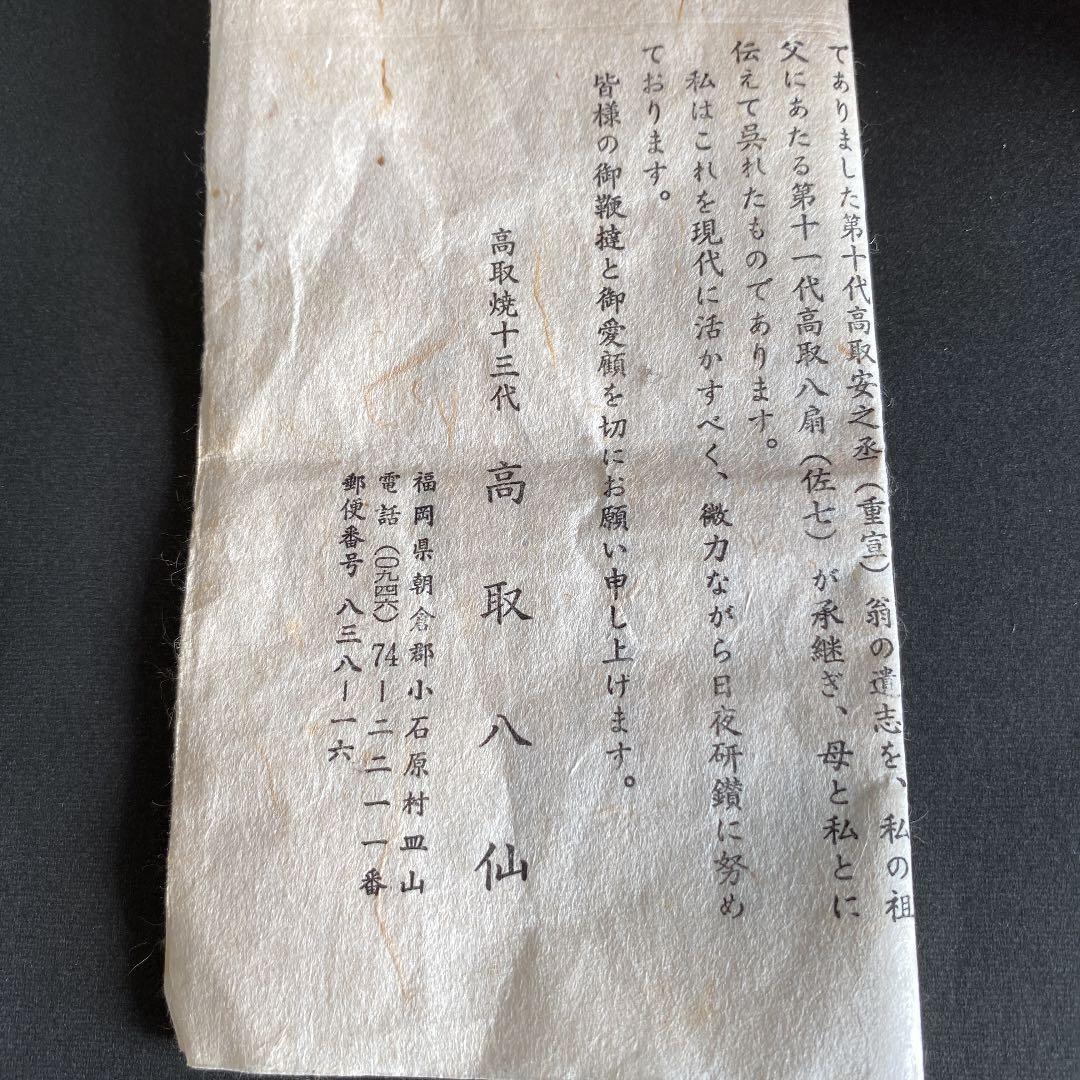 でありました第十代高取安之丞（重宣）翁の遺志を、私の祖
父にあたる第十一代高取八扇（佐七）が承継ぎ、母と私とに
伝えて呉れたものであります。
私はこれを現代に活かすべく、微力ながら日夜研鑽に努め
ております。
皆様の御鞭撻と御愛顧を切にお願い申し上げます。
高取焼十三代 高取八仙
福岡県朝倉郡小石原村皿山
電話（〇九四六）74ー二二一一番
郵便番号 八三八ー一六